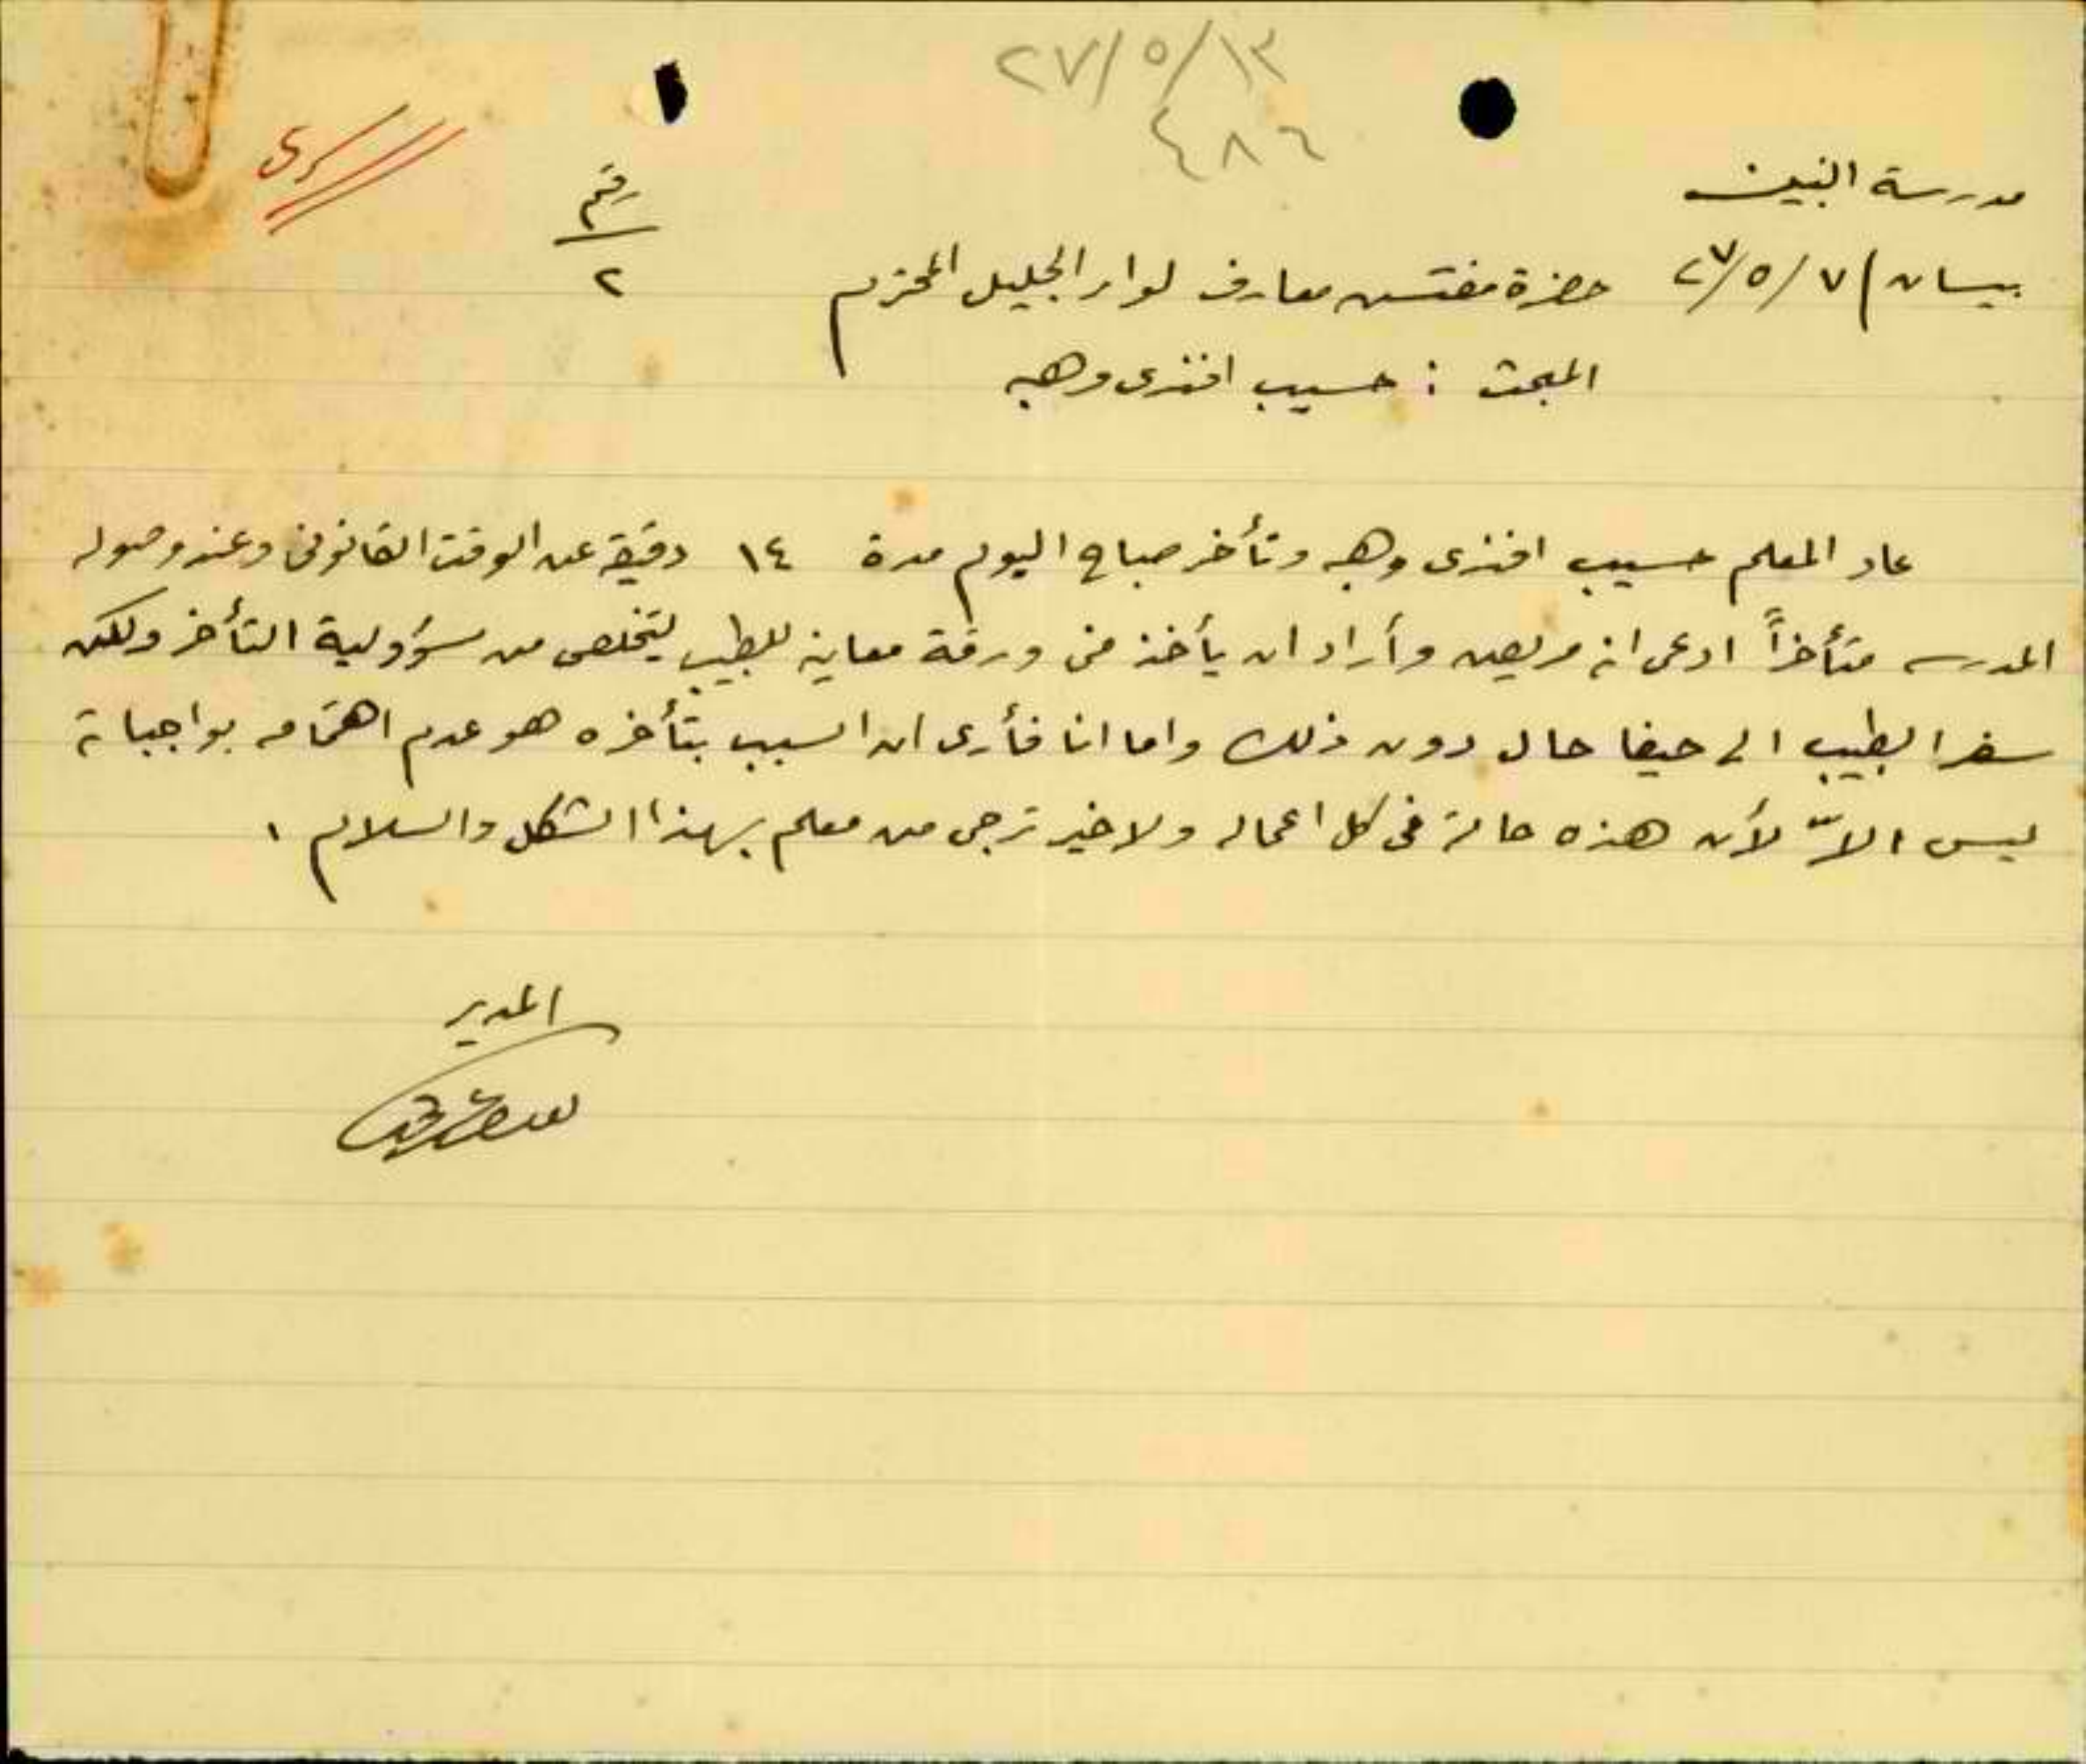 ٢٧/٥/١٣
٤٨٦
سري
رقم
٢
مدرسة البنين
بيسان / ٧/٥/٢٧ حضرة مفتش معارف لواء الجليل المحترم
المبحث : حسيب افندي وهبه
عاد المعلم حسيب افندي وهبه وتأخر صباح اليوم مدة ١٤ دقيقة عن الوقت القانوني وعند وصوله
المدرسه متأخراً ادعى انه مريض وأراد ان يأخذ مني ورقة معاينه للطبيب ليتخلص من مسؤولية التأخر ولكن
سفر الطبيب الى حيفا حال دون ذلك واما انا فأرى ان السبب بتأخره هو عدم اهتمامه بواجباته
ليس الاّ لأن هذه حالته في كل اعماله ولا خير ترجى من معلم بهذا الشكل والسلام .
المدير